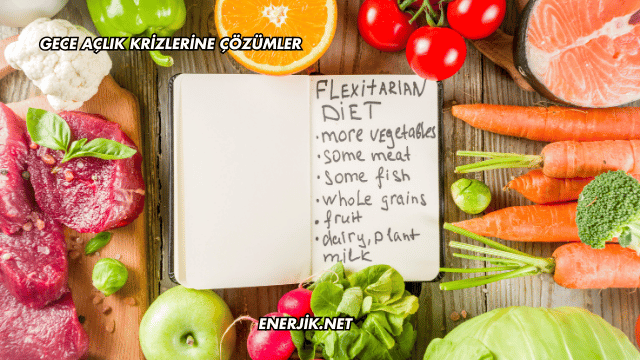 GECE AÇLIK KRİZLERİNE ÇÖZÜMLER
FLEXITARIAN
DIET
• more vegetables
• some meat
• some fish
• whole grains
• fruit
• dairy, plant
milk
ENERJİK.NET